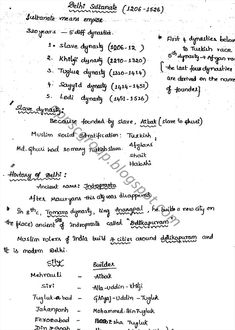 Delhi Sultanate (1206-1526)
Sultanate means empire
320 years - 5 diff dynasties
1. Slave dynasty (1206-
2. Khilji dynasty (1290-1320)
3. Tugluq dynasty (1320-1414)
4. Sayyid dynasty (1414-1451)
5. Lodi dynasty (1451-1526)
First 4 dynasties belong
to Turkish race
5th dynasty → Afgan race
[the last four dynasties
are derived on the name
of founder]
Slave dynasty:
Because founded by slave, Aibak (slave to ghuri)
Muslim social stratification: Turkish
Afghani
Shaik
Md. Ghuri had so many Turkish slaves
History of Delhi:
Ancient name: Indraprasta
After Mauryans this city was disappeared
In 8th C, Tomara dynasty, king Anangpal, he build a new city on
the place ancient of Indraprastha called "Dillikapuram"
Muslim rulers of India build cities around Dillikapuram and
it is modern Delhi.
City Builder
Mehrauli - Aibak
Siri - Alla-uddin-Khilji
Tuglukabad - Ghiyas-Uddin-Tugluk
Jahanpanah - Mohammed-Bin-Tugluk
Ferozabad - Tugluk